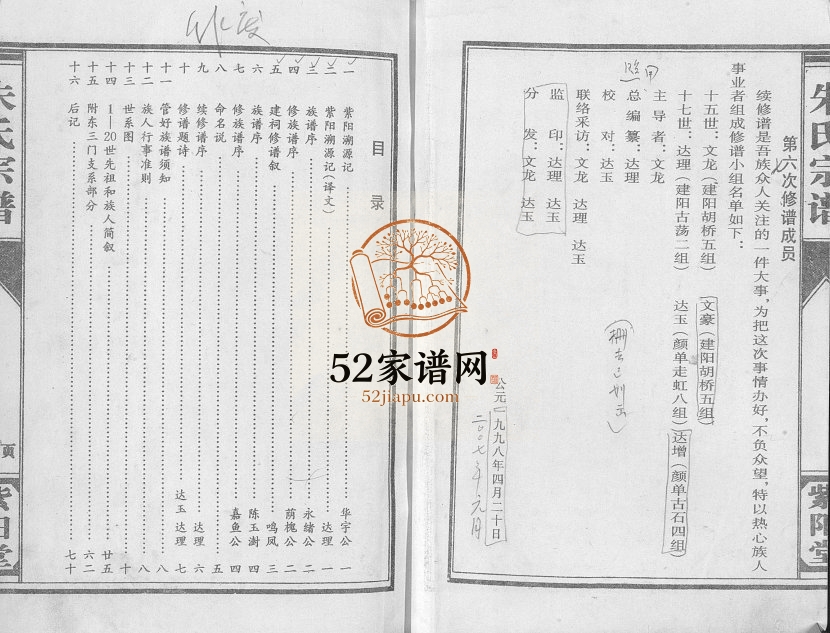 朱氏宗谱
紫阳堂
第六次修谱成员
续修谱是吾族众人关注的一件大事，为把这次事情办好，不负众望，特以热心族人
事业者组成修谱小组名单如下：
十五世：文龙（建阳胡桥五组） 文豪（建阳胡桥五组）
十七世：达理（建阳古荡二组） 达玉（颜单走虹八组） 达增（颜单古石四组）
主导者：文龙
总编纂：达理
校对：达玉
联络采访：文龙 达理 达玉
监印：达理 达玉
分发：文龙 达玉
公元一九九八年四月二十日
二〇〇七年元月
目录
一 紫阳溯源记 华宇公 一
二 紫阳溯源记（译文） 达理 一
三 族谱序 永绪公 二
四 修族谱序 荫槐公 二
五 建祠修谱叙 鸣凤 三
六 族谱序 陈玉澍 四
七 修族谱序 嘉鱼公 四
八 命名说 五
九 续修谱序 达理 六
十 修谱题诗 达玉 达理 七
十一 管好族谱须知 八
十二 族人行事准则 八
十三 世系图 九
十四 1—20世先祖和族人简叙 廿五
十五 附东三门支系部分 六二
十六 后记 七十
朱氏宗谱
页
紫阳堂
52家谱网
52jiapu.com